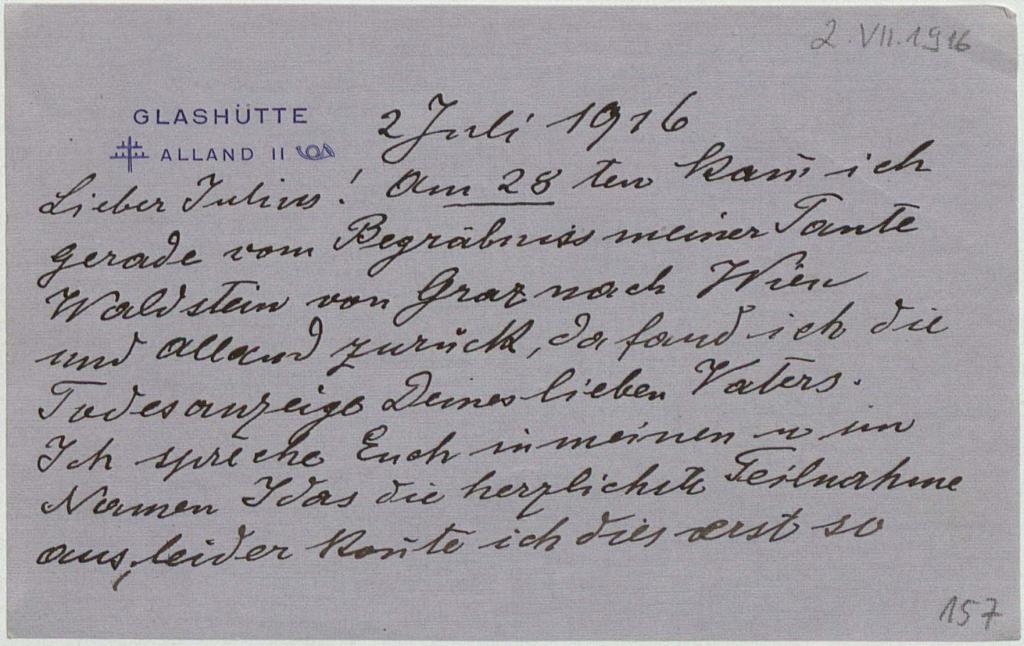 2. VII. 1916
GLASHÜTTE
ALLAND II
2 Juli 1916
Lieber Julius! Am 28 ten kam̄ ich
gerade vom Begräbniss meiner Tante
Waldstein von Graz nach Wien
und Alland zurück, da fand ich die
Todesanzeige Deines lieben Vaters.
Ich spreche Euch in meinen u im
Namen Idas die herzlichste Teilnahme
aus, leider kon̄te ich dies erst so
157